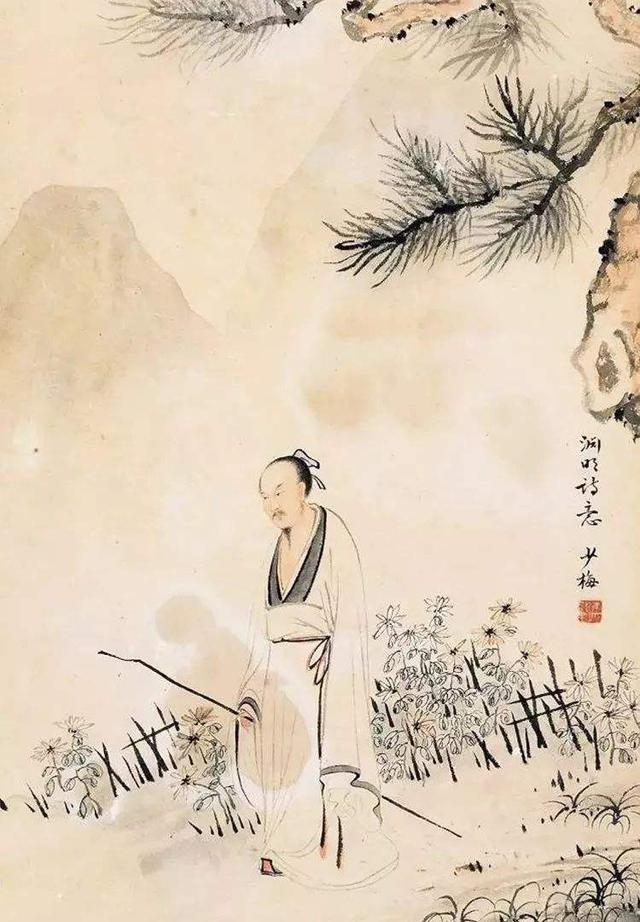 渊明诗意 少梅